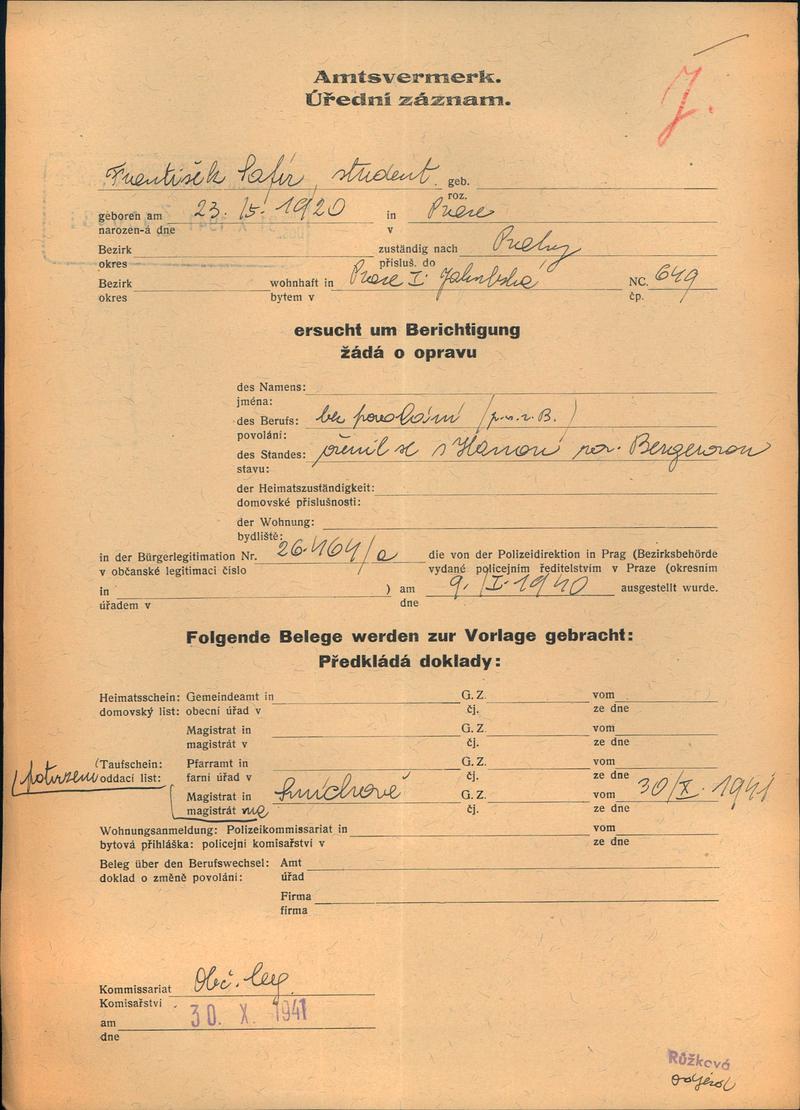 Amtsvermerk.
Úřední záznam.
J.
František Šafír, student. geb.
roz.
geboren am 23. /5. 1920 in Praze
narozen-á dne v
Bezirk zuständig nach Prahy
okres přísluš. do
Bezirk wohnhaft in Praze I. NC. 649
okres bytem v čp.
ersucht um Berichtigung
žádá o opravu
des Namens:
jména:
des Berufs: bez povolání
povolání:
des Standes: oženil se s Hanou roz. Bergerovou
stavu:
der Heimatszuständigkeit:
domovské příslušnosti:
der Wohnung:
bydliště:
in der Bürgerlegitimation Nr. 26.464/a die von der Polizeidirektion in Prag (Bezirksbehörde
v občanské legitimaci číslo vydané policejním ředitelstvím v Praze (okresním
in ) am 9. /I. 1940 ausgestellt wurde.
úřadem v dne
Folgende Belege werden zur Vorlage gebracht:
Předkládá doklady:
Heimatsschein: Gemeindeamt in G. Z. vom
domovský list: obecní úřad v čj. ze dne
Magistrat in G. Z. vom
magistrát v čj. ze dne
(Taufschein: Pfarramt in G. Z. vom
potvrzení oddací list: farní úřad v čj. ze dne
Magistrat in Smíchově G. Z. vom 30/X. 1941
magistrát na čj. ze dne
Wohnungsanmeldung: Polizeikommissariat in vom
bytová přihláška: policejní komisařství v ze dne
Beleg über den Berufswechsel: Amt
doklad o změně povolání: úřad
Firma
firma
Kommissariat Obč. leg.
Komisařství
am 30. X. 1941
dne
Růžková